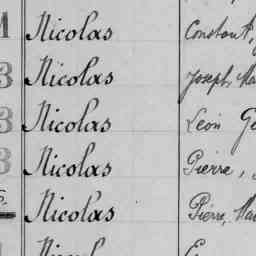 1 Nicolas Constant,
3 Nicolas Joseph Ma
3 Nicolas Léon Ge
3 Nicolas Pierre,
Nicolas Pierre, Ma